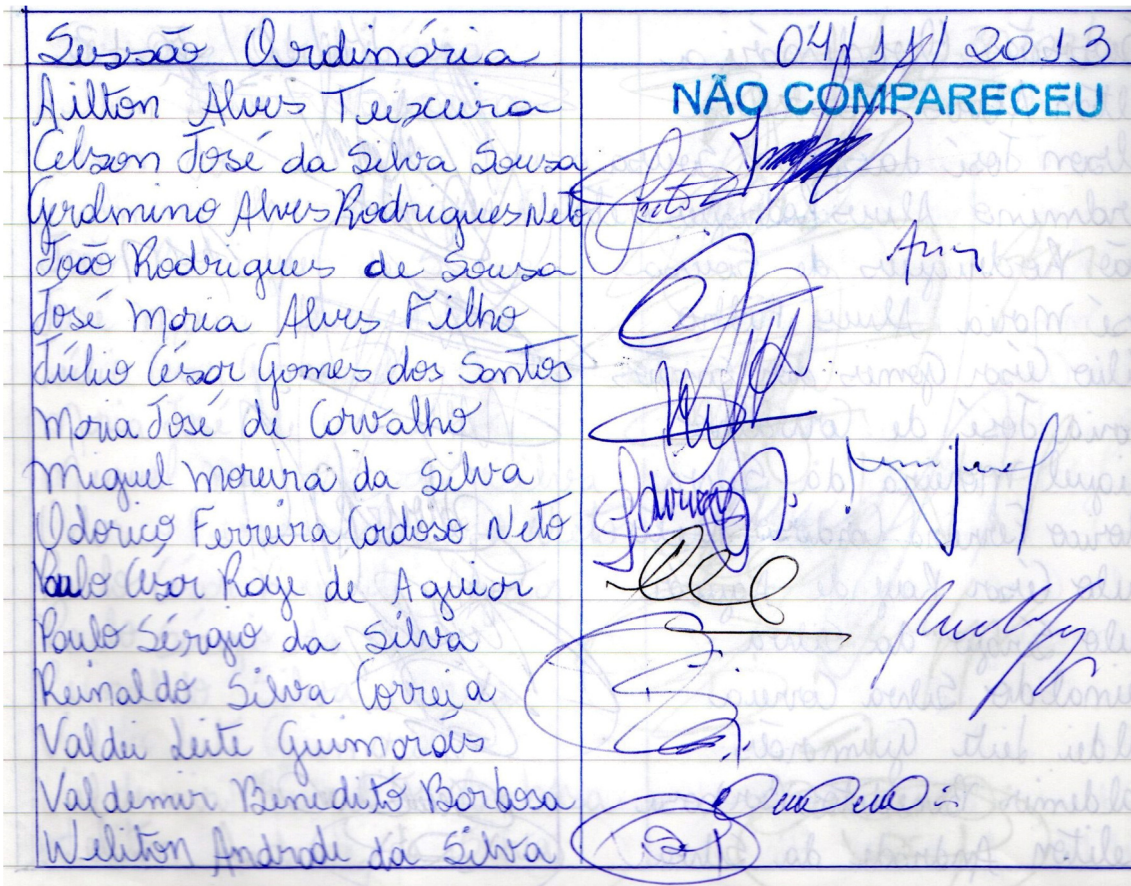 Sessão Ordinária 04/11/2013
Ailton Alves Teixeira NÃO COMPARECEU
Celson José da Silva Sousa
Gerdmino Alves Rodrigues Neto
João Rodrigues de Sousa
José Maria Alves Filho
Júlio César Gomes dos Santos
Maria José de Carvalho
Miguel Moreira da Silva
Odorico Ferreira Cardoso Neto
Paulo César Raye de Aguiar
Paulo Sérgio da Silva
Reinaldo Silva Correia
Valdei Leite Guimarães
Valdemir Benedito Barbosa
Weliton Andrade da Silva